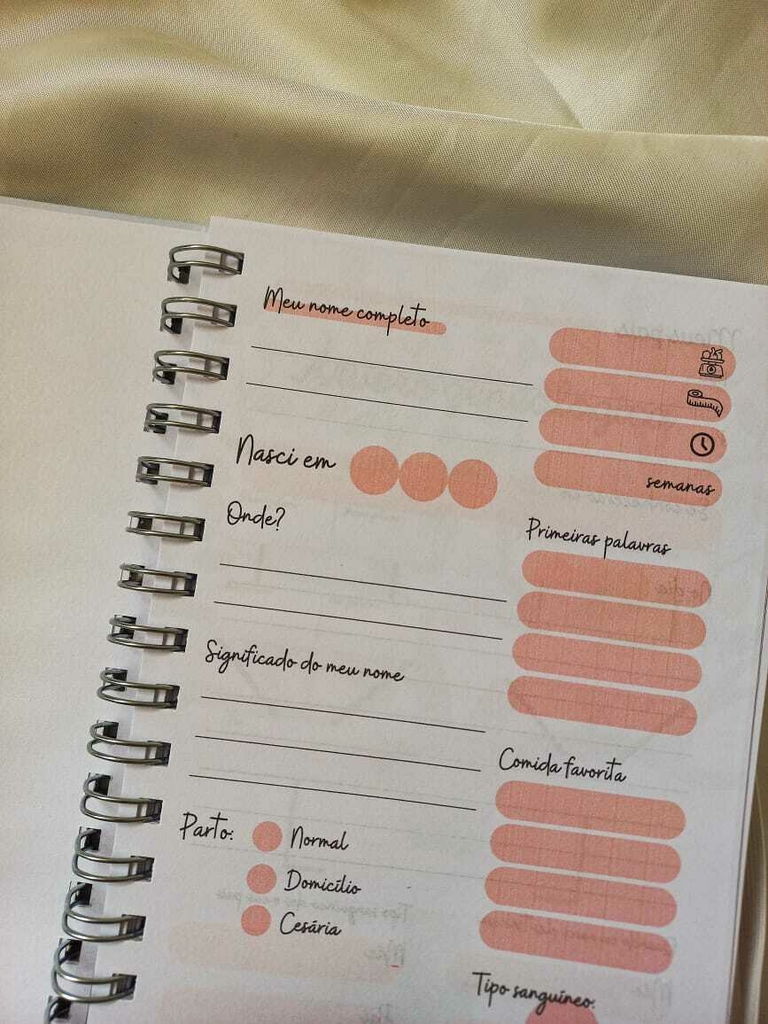 Meu nome completo
Nasci em
Onde?
Significado do meu nome
Parto:
Normal
Domicílio
Cesária
semanas
Primeiras palavras
Comida favorita
Tipo sanguíneo: